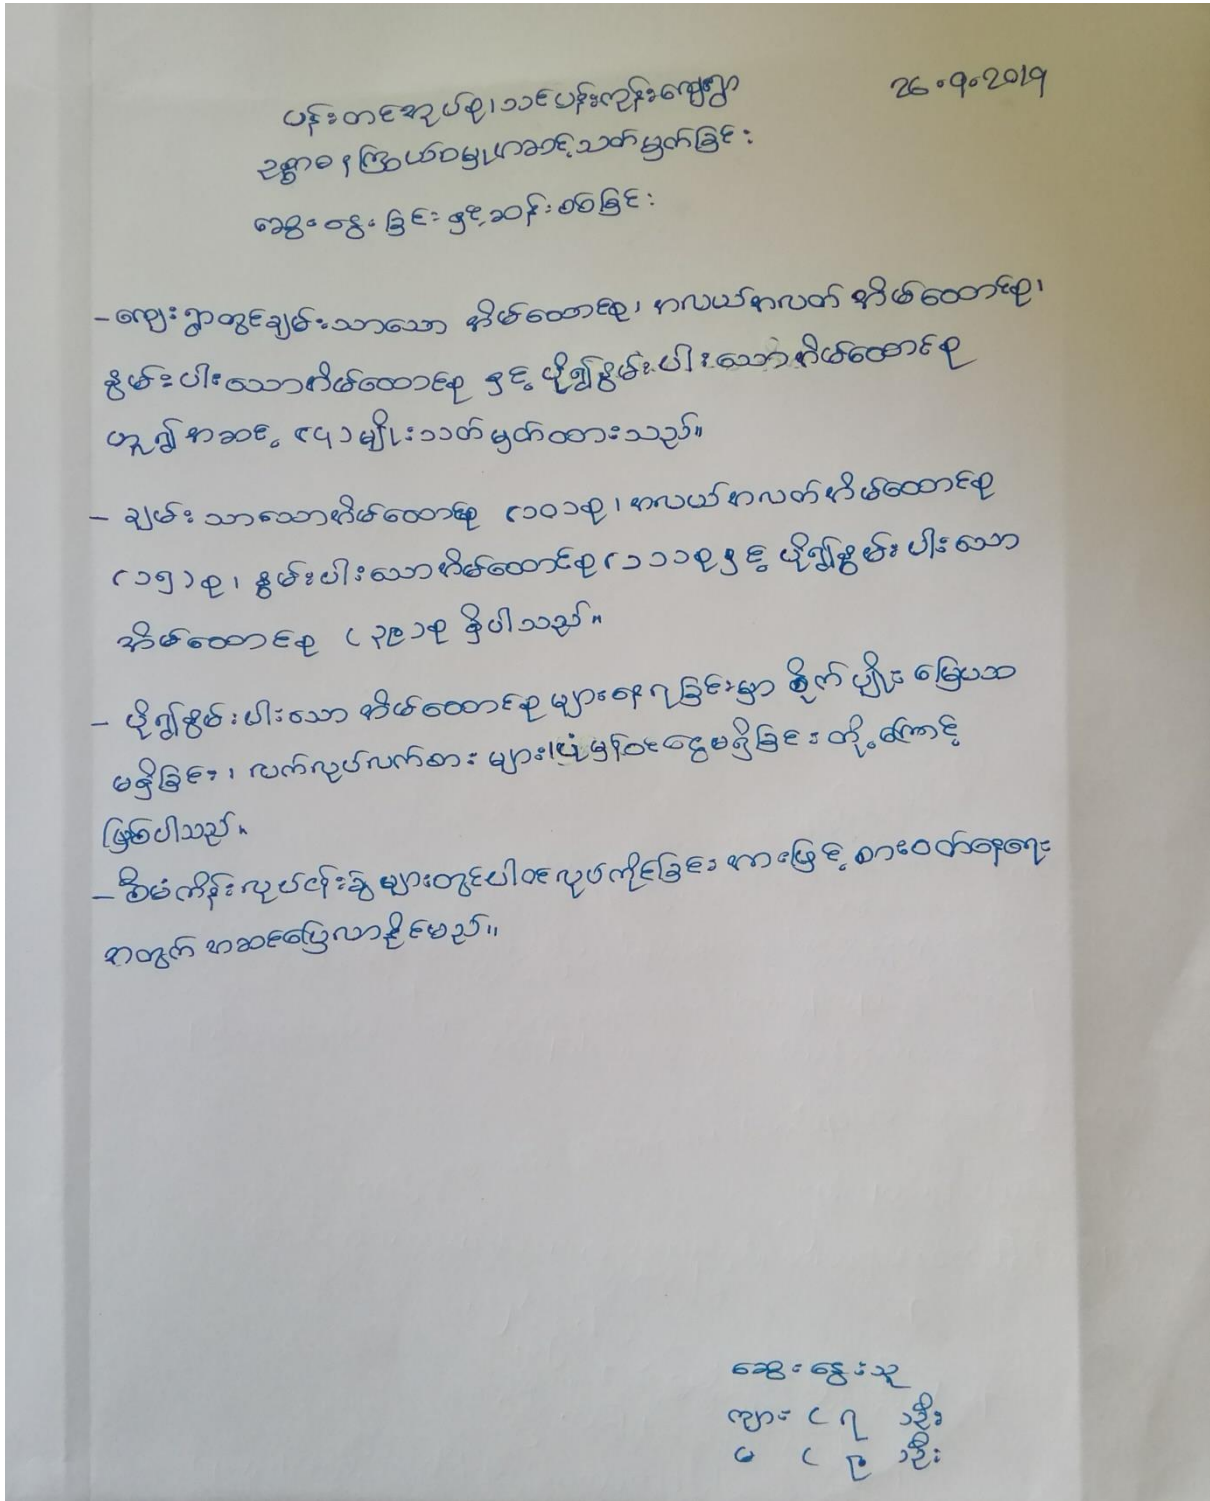 26.9.2019
ပန်းတင်အုပ်စု၊ သင်ပန်းကုန်းကျေးရွာ
ဥစ္စာဓနကြွယ်ဝမှုအဆင့်သတ်မှတ်ခြင်း
ဆွေးနွေးခြင်းနှင့်ဆန်းစစ်ခြင်း
- ကျေးရွာတွင်ချမ်းသာသော အိမ်ထောင်စု၊ အလယ်အလတ် အိမ်ထောင်စု၊
နွမ်းပါးသောအိမ်ထောင်စု နှင့် ပို၍နွမ်းပါးသောအိမ်ထောင်စု
ဟူ၍ အဆင့် (၄)မျိုးသတ်မှတ်ထားသည်။
- ချမ်းသာသောအိမ်ထောင်စု (၁၀)စု၊ အလယ်အလတ်အိမ်ထောင်စု
(၁၅)စု၊ နွမ်းပါးသောအိမ်ထောင်စု(၁၁)စုနှင့် ပို၍နွမ်းပါးသော
အိမ်ထောင်စု (၃၉)စု ရှိပါသည်။
- ပို၍နွမ်းပါးသော အိမ်ထောင်စုများနေရခြင်းမှာ စိုက်ပျိုးမြေယာ
မရှိခြင်း၊ လက်လုပ်လက်စားများ၊ပုံမှန်ဝင်ငွေမရှိခြင်းတို့ကြောင့်
ဖြစ်ပါသည်။
- စီမံကိန်းလုပ်ငန်းခွဲများတွင်ပါဝင်လုပ်ကိုင်ခြင်းအားဖြင့် စားဝတ်နေရေး
အတွက် အဆင်ပြေလာနိုင်မည်။
ဆွေးနွေးသူ
ကျား (၇)ဦး
မ (၉)ဦး